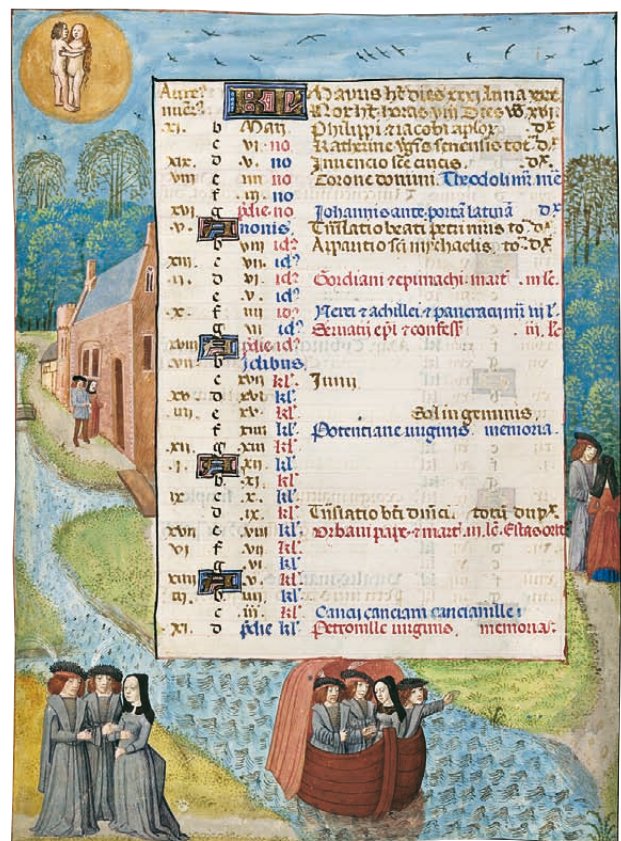 Aure9 KAL Mayus ht dies xxxi luna xxx
nuer9 Nox ht horas viii Dies vo xvi
xi. b Maii Philippi et iacobi aplor dx
c vi no Katherine vgis senensis tot dx
xix. d v. no Invencio sce crucis. dx.
viii e iiii no Corone domini. Theodoli mr me
f iii. no
xvi g pdie no Johannis ante porta latina dx
v. A nonis Trislatio beati petri mris to dx
b viii id9 Apparitio sci michaelis. to dx
xiii. c vii. id9
ii. d vi. id9 Gordiani et epimachi mart. iii lc.
e v. id9
x. f iiii id9 Nerei et achillei et pancracii mr iii l.
g iii id9 Servatii epi et confess. iii. lc
xviii A pdie id9
vii. b Idibus.
c xvii kl. Junii
xv d xvi kl.
iiii. e xv. kl. Sol in geminis.
f xiiii kl. Potenciane virginis memoria.
xii. g xiii kl.
.i. A xii. kl.
b xi. kl.
ix c .x. kl.
d ix. kl. Trislatio bti dnici. totu dupx.
xvii e viii kl. Orbani pape et mart. iii. lc. Estas orit
vi f vii kl.
g vi. kl.
xiiii A .v. kl.
iii. b iiii. kl.
c iii. kl. Cancii canciani cancianille
xi. d pdie kl. Petronille virginis. memoria.